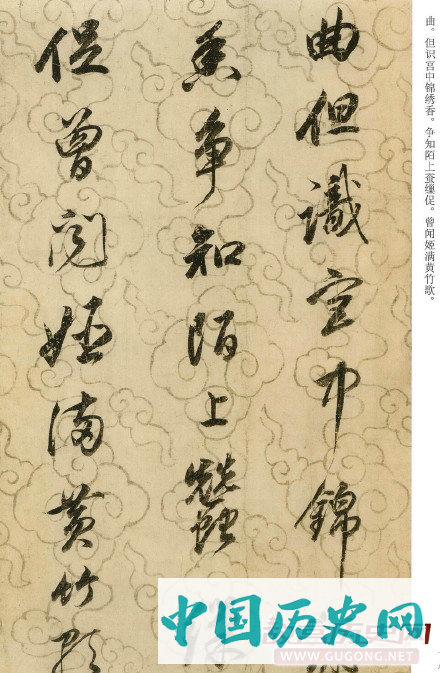 曲但識宫中錦
香争知陌上蠶
促曾闻姬满黄竹歌
曲。但识宫中锦绣香。争知陌上蚕缫促。曾闻姬满黄竹歌。
中国历史网
WWW.GUGONG.NET